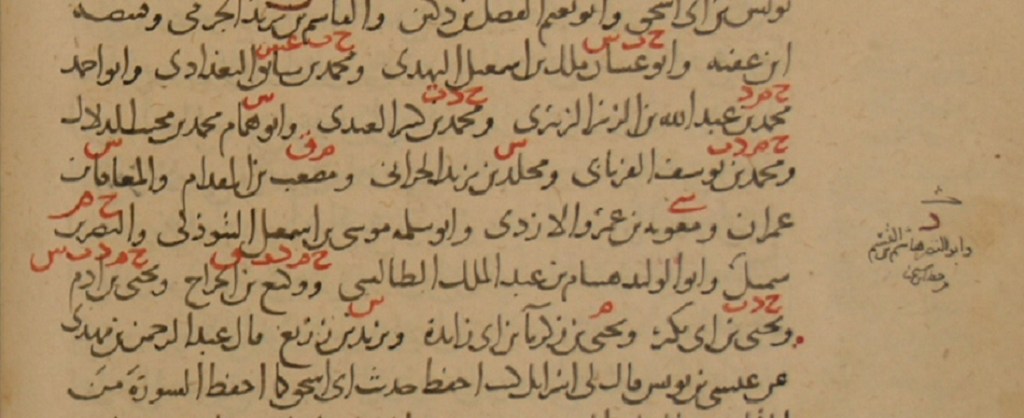 يونس بن ابي اسحق وابو نعيم الفضل بن دكين والقاسم بن يزيد الجرمي وقبيصه
ابن عقبه وابو غسان ملك بن اسمعيل النهدى ومحمد بن سابق البغدادى وابو احمد
خ م د
محمد بن عبد الله بن الزبير الزبيرى ومحمد بن كثير العبدى وابو همام محمد بن محبب الدلال
ومحمد بن يوسف الفريابى ومخلد بن يزيد الحرانى ومصعب بن المقدام والمعافى بن
عمران ومعويه بن عمرو الازدى وابو سلمه موسى بن اسمعيل التبوذكى والنضر بن
شميل وابو الوليد هشام بن عبد الملك الطيالسي ووكيع بن الجراح ويحيى بن ادم
ويحيى بن ابى بكير ويحيى بن زكريا بن ابى زايدة ويزيد بن زريع قال عبد الرحمن بن مهدى
عن عيسى بن يونس قال لى اسرايل كنت احفظ حديث ابى اسحق كما احفظ السورة من
د
وابو النضر هاشم بن القسم